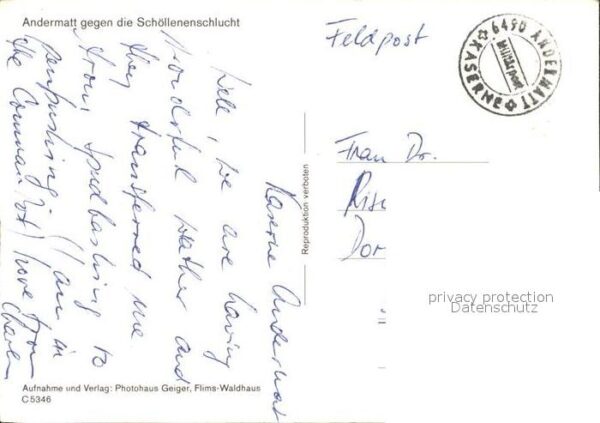 Andermatt gegen die Schöllenenschlucht
Kaserne Andermat
Well, we are having
wonderful weather and
they transferred me
from spudbashing to
penpushing (I am in
the Comman Pst) love from
Charles
Feldpost
6490 ANDERMATT
Militärpost
KASERNE
Frau Dr.
Ris
Dor
Reproduktion verboten
privacy protection
Datenschutz
Aufnahme und Verlag: Photohaus Geiger, Flims-Waldhaus
C 5346